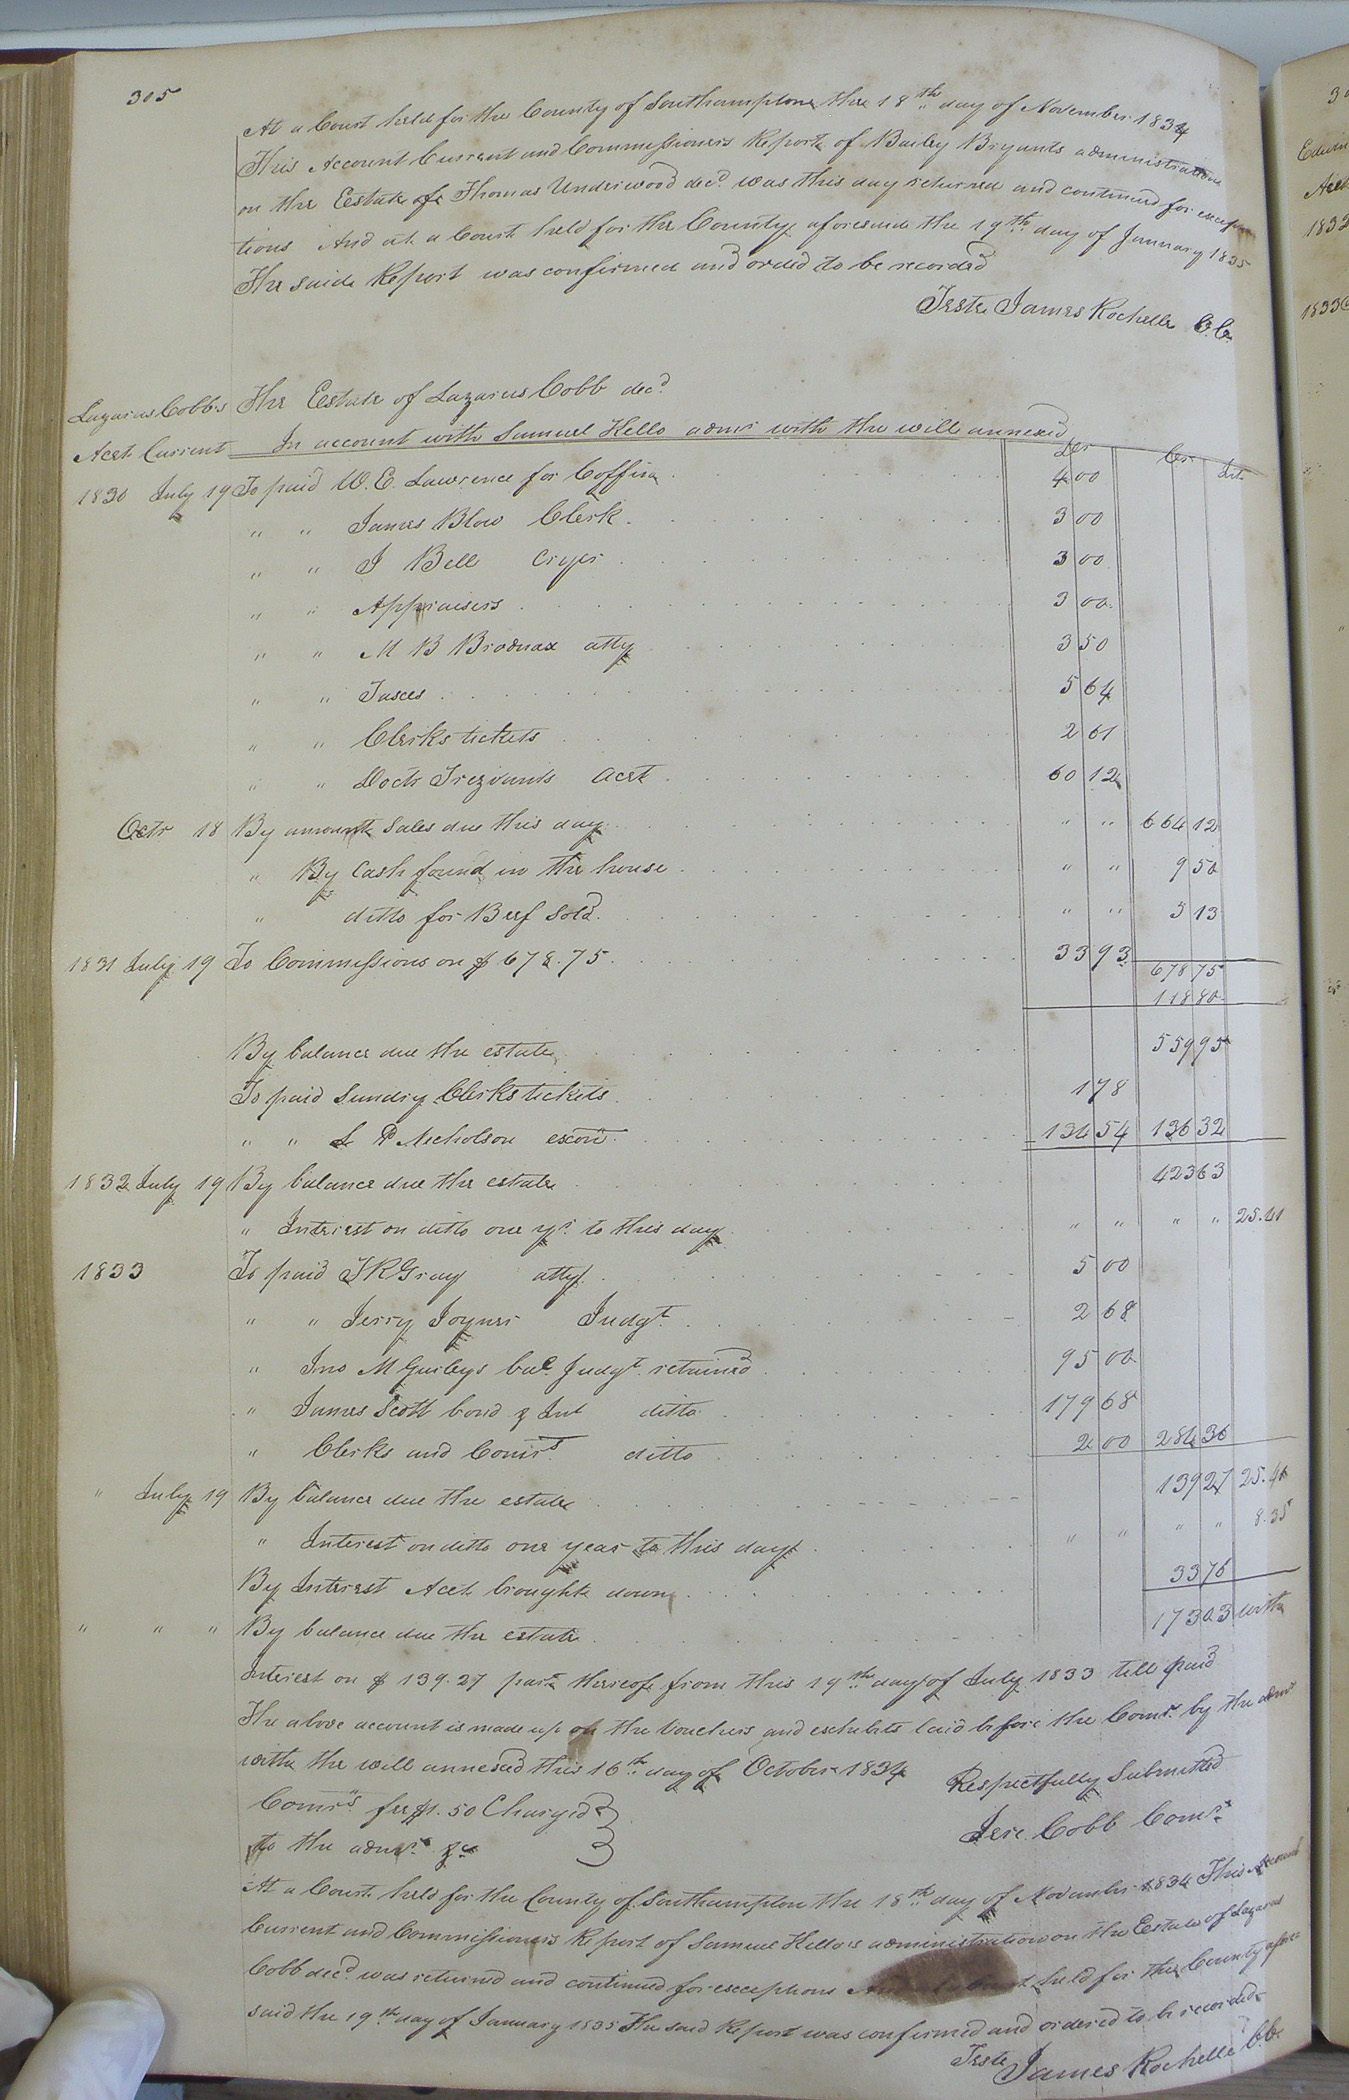 305
At a Court held for the County of Southampton the 18th day of November 1834
This Account Current and Commissioners Report of Bailey Bryants administration
on the Eestate of Thomas Underwood decd. was this day returned and continued for excep
tions And at a Court held for the County aforesaid the 19th day of January 1835
The said Report was confirmed and orded to be recorded
Teste James Rochelle C.C.
Lazarus Cobb's The Eestate of Lazarus Cobb decd
Acct Current In account with Samuel Kello admr with the will annexed Dr Cr Int
1830 July 19 To paid W. E. Lawrence for Coffin 4 00
" " James Blow Clerk 3 00
" " J Bell Cryer 3 00
" " Appraisers 3 00
" " M B Brodnax atty 3 50
" " Taxes 5 64
" " Clerks tickets 2 61
" " Doctr Trezvants acct 60 12
Octr 18 By amount Sales due this day " " 664 12
" By Cash found in the house " " 9 50
" ditto for Beef Sold " " 5 13
1831 July 19 To Commissions on $678.75 33 93
678 75
118 80
By balance due the estate 559 95
To paid Sundry Clerks tickets 1 78
" " Nicholson 134 54 136 32
1832 July 19 By balance due the estate 423 63
" Interest on ditto one yr. to this day " " " " 25.41
1833 To paid J R Gray atty 5 00
" " Jerry Joyner Judgt. 2 68
" Jno M Gurleys bal. Judgt. retained 95 00
" James Scott bond & Int ditto 179 68
" Clerks and Comrs. ditto 2 00 284 36
" July 19 By balance due the estate 139 27 25.41
" Interest on ditto one year to this day " " " " 8.35
By Interest Acct brought down 33 76
" " " By balance due the estate 173 03 with
Interest on $139.27 part thereof from this 19th day of July 1833 till paid
The above account is made up of the Vouchers and exhibits laid before the Comr. by the admr
with the will annexed this 16th day of October 1834
Respectfully Submitted
Comrs. fee $1.50 Charged
to the admr. &c
Jere. Cobb Comr.
At a Court held for the County of Southampton the 18th day of November 1834 This Account
Current and Commissioners Report of Samuel Kello's administration on the Estate of Lazarus
Cobb decd. was returned and continued for exceptions And at a Court held for the County afore
said the 19th day of January 1835 The said Report was confirmed and ordered to be recorded
Teste James Rochelle C.C.
Edwin
Acct
1832
1833